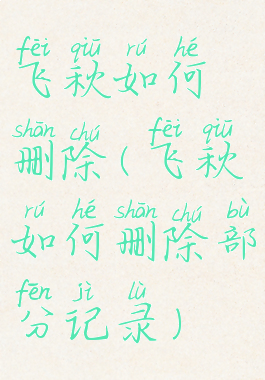 fēi qiū rú hé
飞秋如何
shān chú fēi qiū
删除(飞秋
rú hé shān chú bù
如何删除部
fēn jì lù
分记录)